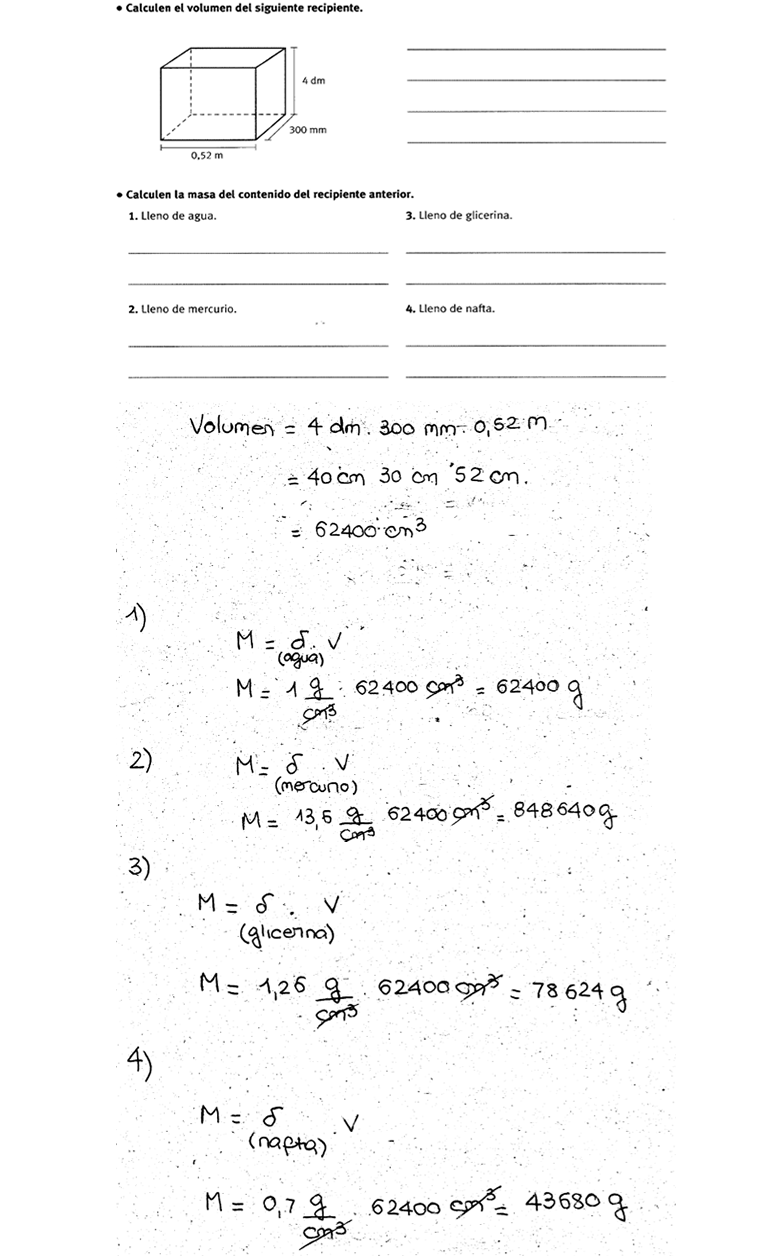 • Calculen el volumen del siguiente recipiente.
4 dm
300 mm
0,52 m
• Calculen la masa del contenido del recipiente anterior.
1. Lleno de agua.
3. Lleno de glicerina.
2. Lleno de mercurio.
4. Lleno de nafta.
Volumen = 4 dm . 300 mm . 0,52 m
= 40 cm 30 cm 52 cm.
= 62400 cm³
1)
M = δ . V
(agua)
M = 1 g/cm³ . 62400 cm³ = 62400 g
2)
M = δ . V
(mercurio)
M = 13,6 g/cm³ 62400 cm³ = 848640 g
3)
M = δ . V
(glicerina)
M = 1,26 g/cm³ . 62400 cm³ = 78624 g
4)
M = δ . V
(nafta)
M = 0,7 g/cm³ . 62400 cm³ = 43680 g